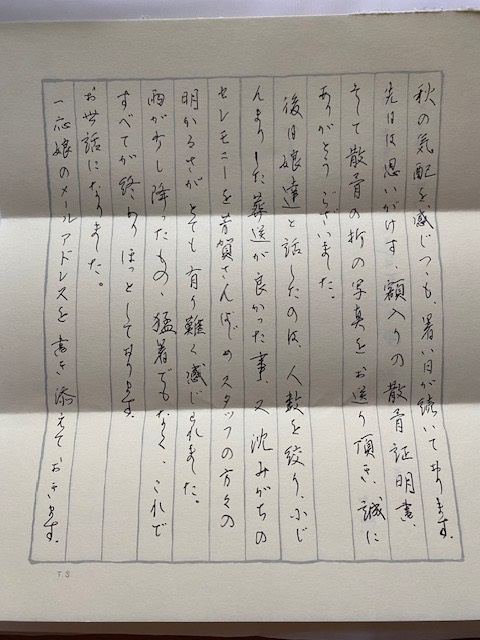 秋の気配を感じつゝも、暑い日が続いております。
先日は思いがけず、額入りの散骨証明書、
そして散骨の折の写真をお送り頂き、誠に
ありがとうございました。
後日娘達と話したのは、人数を絞り、小じ
んまりした葬送が良かった事、又沈みがちの
セレモニーを芳賀さんはじめスタッフの方々の
明かるさがとても有り難く感じられました。
雨が少し降ったものゝ猛暑でもなく、これで
すべてが終わりほっとしております。
お世話になりました。
一応娘のメールアドレスを書き添えておきます。
TS